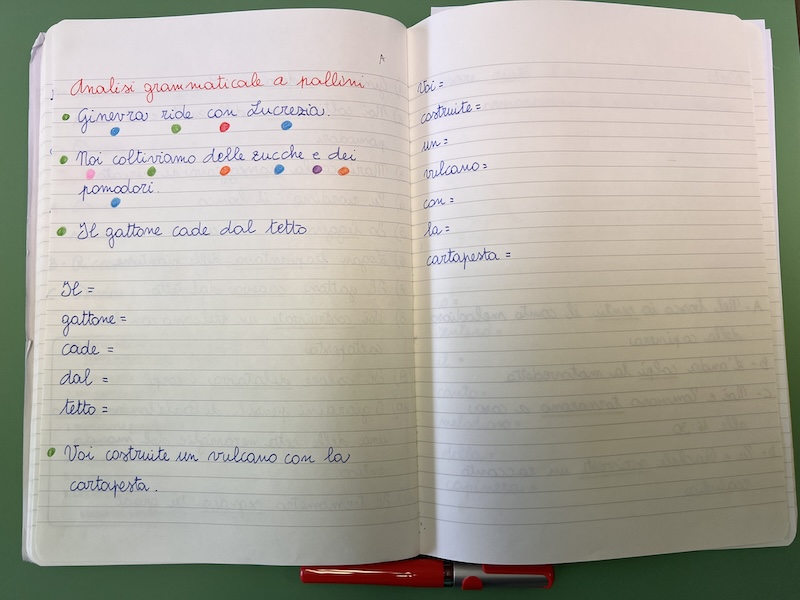 A
Analisi grammaticale a pallini
Ginevra ride con Lucrezia.
Noi coltiviamo delle zucche e dei
pomodori.
Il gattone cade dal tetto
Il =
gattone =
cade =
dal =
tetto =
Voi costruite un vulcano con la
cartapesta.
Voi =
costruite =
un =
vulcano =
con =
la =
cartapesta =